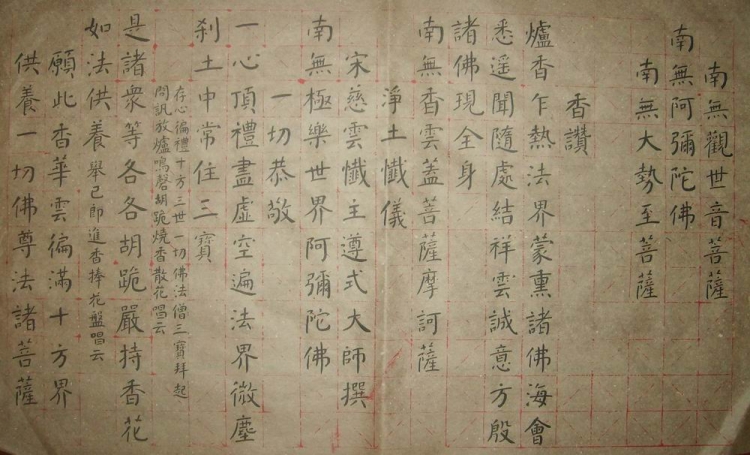 南無觀世音菩薩
南無阿彌陀佛
南無大勢至菩薩
香讚
爐香乍熱法界蒙熏諸佛海會
悉遥聞隨處結祥雲誠意方殷
諸佛現全身
南無香雲蓋菩薩摩訶薩
淨土懺儀
宋慈雲懺主遵式大師撰
南無極樂世界阿彌陀佛
一切恭敬
一心頂禮盡虛空遍法界微塵
刹土中常住三寶
存心徧禮十方三世一切佛法僧三寶拜起
問訊放爐鳴磬胡跪燒香散花唱云
是諸衆等各各胡跪嚴持香花
如法供養舉己即進香捧花盤唱云
願此香華雲徧滿十方界
供養一切佛尊法諸菩薩